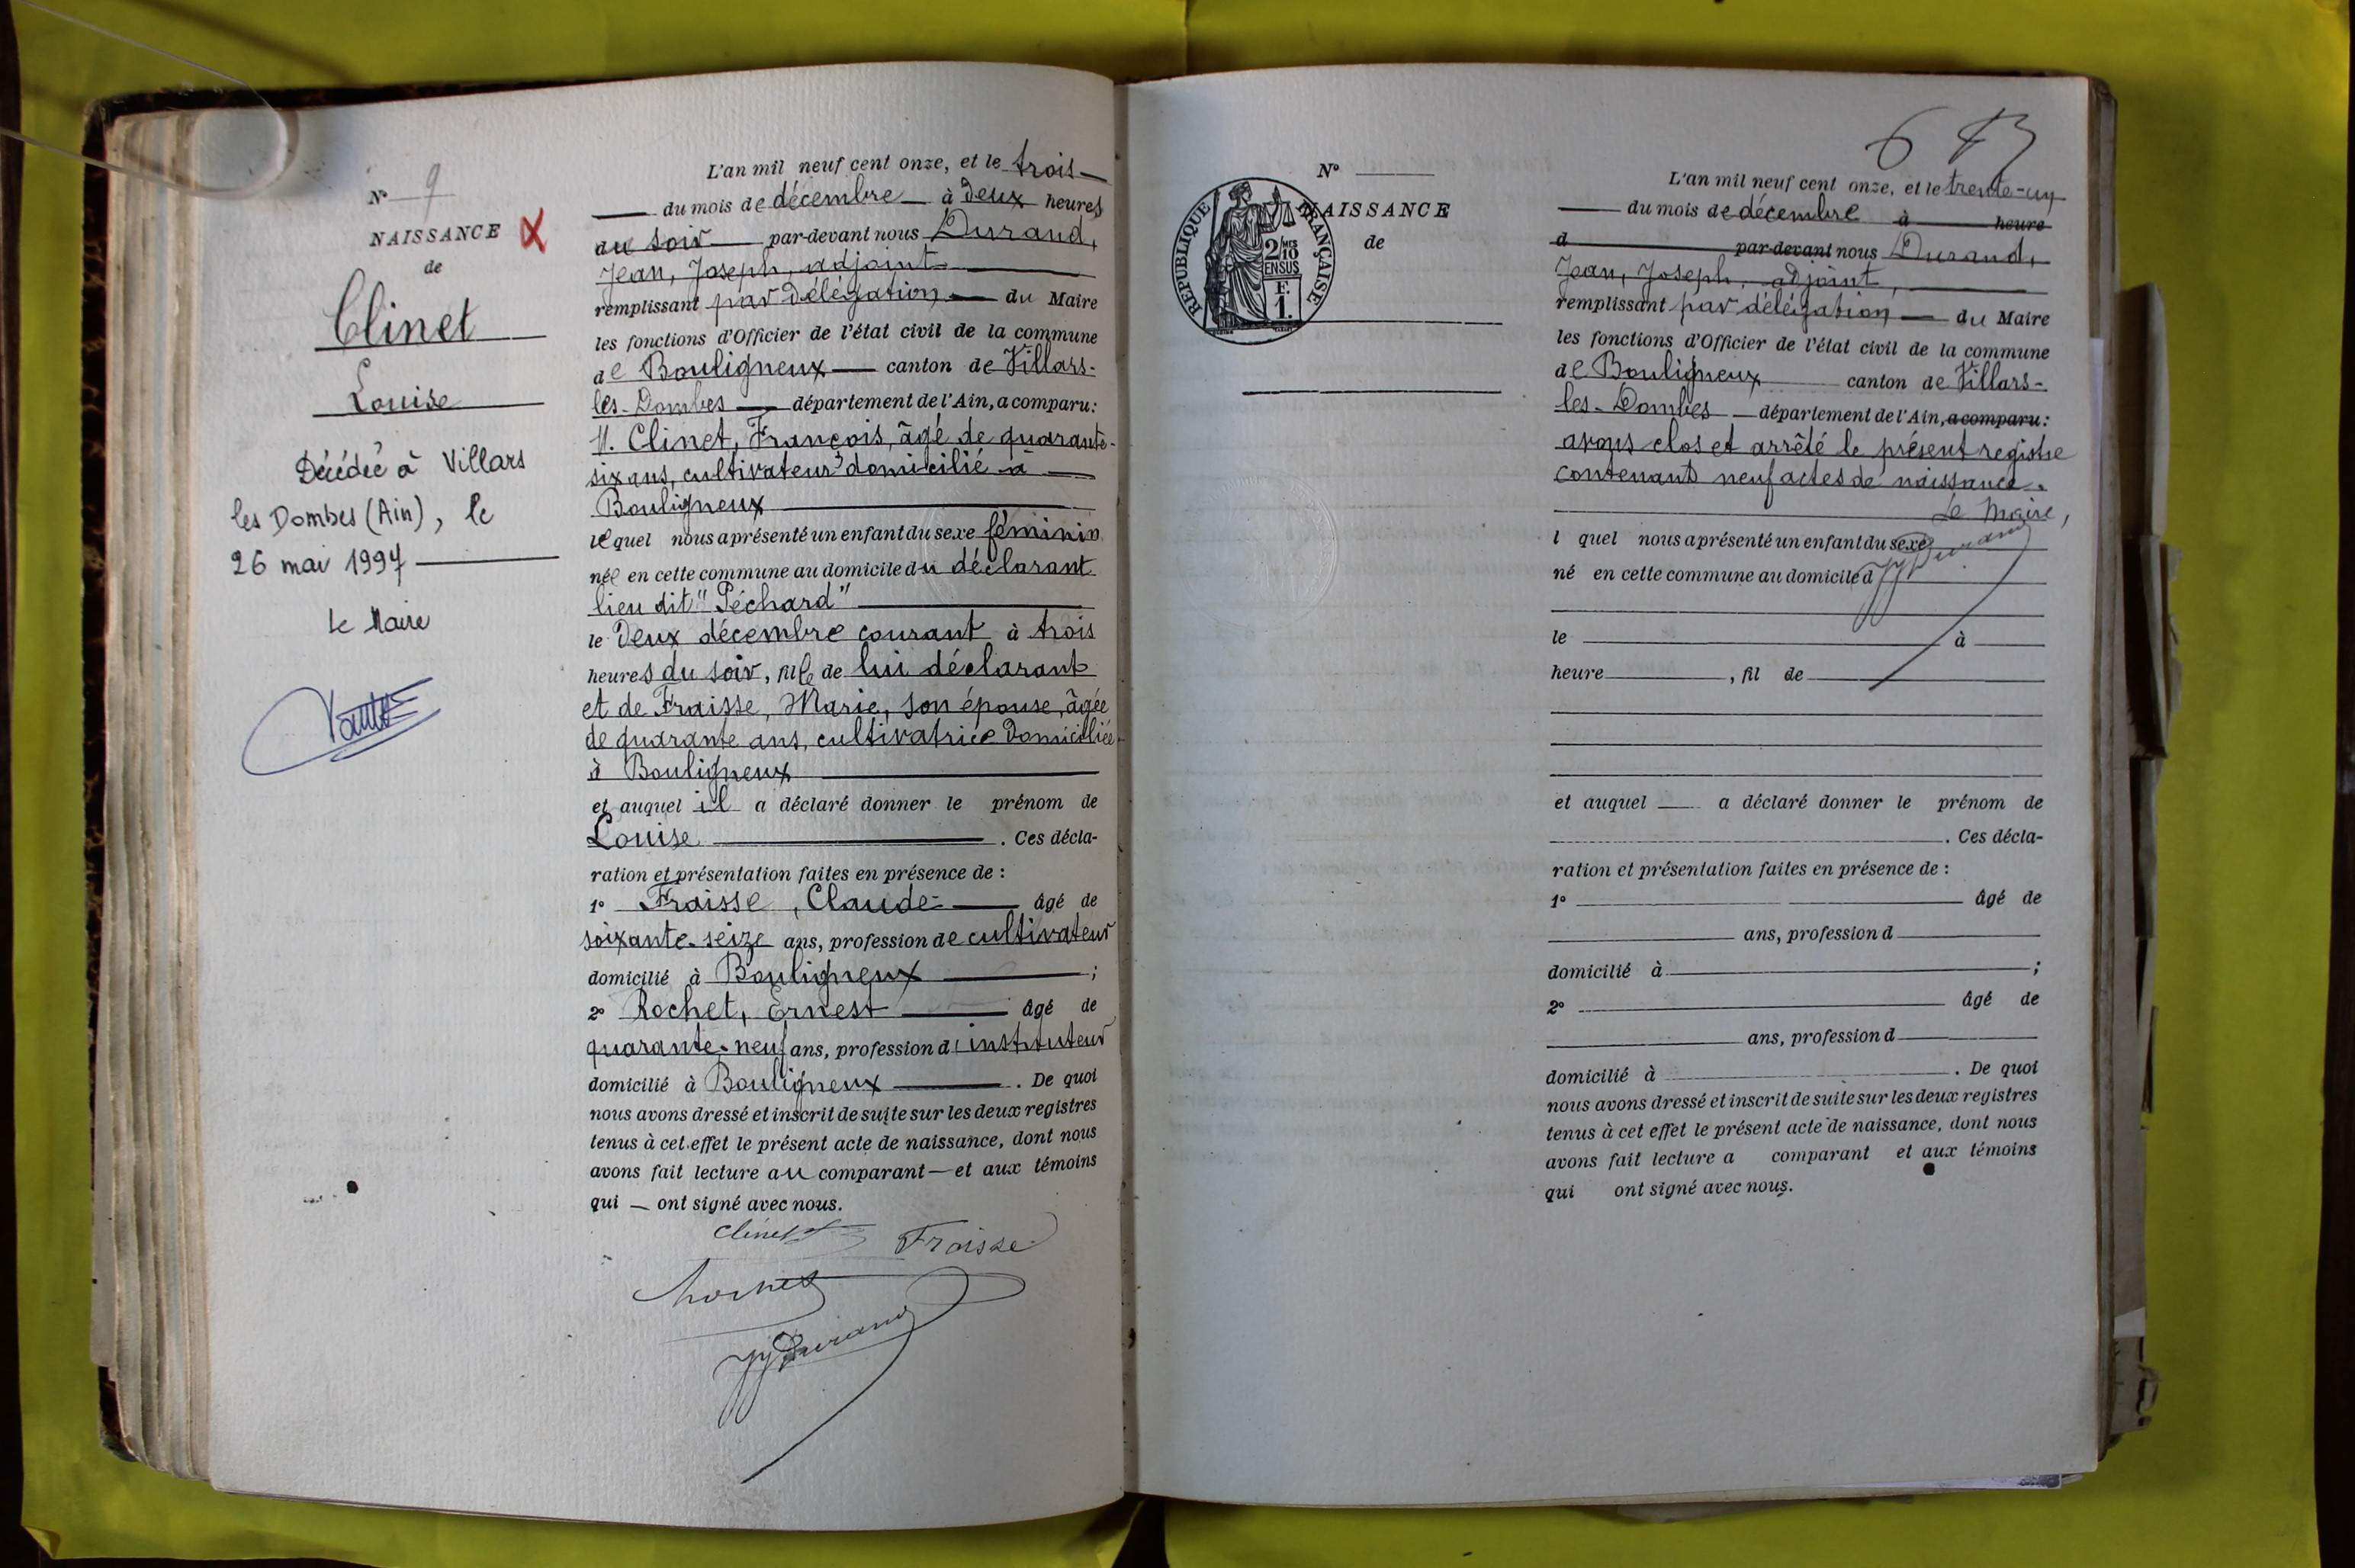 N° 9
NAISSANCE X
de
Clinet
Louise
Décédée à Villars
les Dombes (Ain), le
26 mai 1997
Le Maire
L'an mil neuf cent onze, et le trois
du mois de décembre à deux heures
du soir par-devant nous Durand,
Jean, Joseph, adjoint
remplissant par délégation du Maire
les fonctions d'Officier de l'état civil de la commune
de Bouligneux canton de Villars-
les-Dombes département de l'Ain, a comparu:
M. Clinet, François, âgé de quarante-
six ans, cultivateur domicilié à
Bouligneux
lequel nous a présenté un enfant du sexe féminin
née en cette commune au domicile du déclarant
lieu dit "Péchard"
le deux décembre courant à trois
heures du soir, fille de lui déclarant
et de Fraisse, Marie, son épouse, âgée
de quarante ans, cultivatrice domiciliée
à Bouligneux
et auquel il a déclaré donner le prénom de
Louise. Ces décla-
ration et présentation faites en présence de :
1° Fraisse, Claude âgé de
soixante-seize ans, profession de cultivateur
domicilié à Bouligneux ;
2° Rochet, Ernest âgé de
quarante-neuf ans, profession d'instituteur
domicilié à Bouligneux. De quoi
nous avons dressé et inscrit de suite sur les deux registres
tenus à cet effet le présent acte de naissance, dont nous
avons fait lecture au comparant et aux témoins
qui ont signé avec nous.
Clinet Fraisse
Rochet
JJ Durand
6
N°
NAISSANCE
de
RÉPUBLIQUE FRANÇAISE
2/10
EN SUS
F.
1.
L'an mil neuf cent onze, et le trente-un
du mois de décembre à heure
d par-devant nous Durand,
Jean, Joseph, adjoint,
remplissant par délégation du Maire
les fonctions d'Officier de l'état civil de la commune
de Bouligneux canton de Villars-
les-Dombes département de l'Ain, a comparu:
avons clos et arrêté le présent registre
contenant neuf actes de naissance.
Le Maire,
l quel nous a présenté un enfant du sexe
né en cette commune au domicile d
JJ Durand
le à
heure , fil de
et auquel a déclaré donner le prénom de
. Ces décla-
ration et présentation faites en présence de :
1° âgé de
ans, profession d
domicilié à ;
2° âgé de
ans, profession d
domicilié à . De quoi
nous avons dressé et inscrit de suite sur les deux registres
tenus à cet effet le présent acte de naissance, dont nous
avons fait lecture a comparant et aux témoins
qui ont signé avec nous.